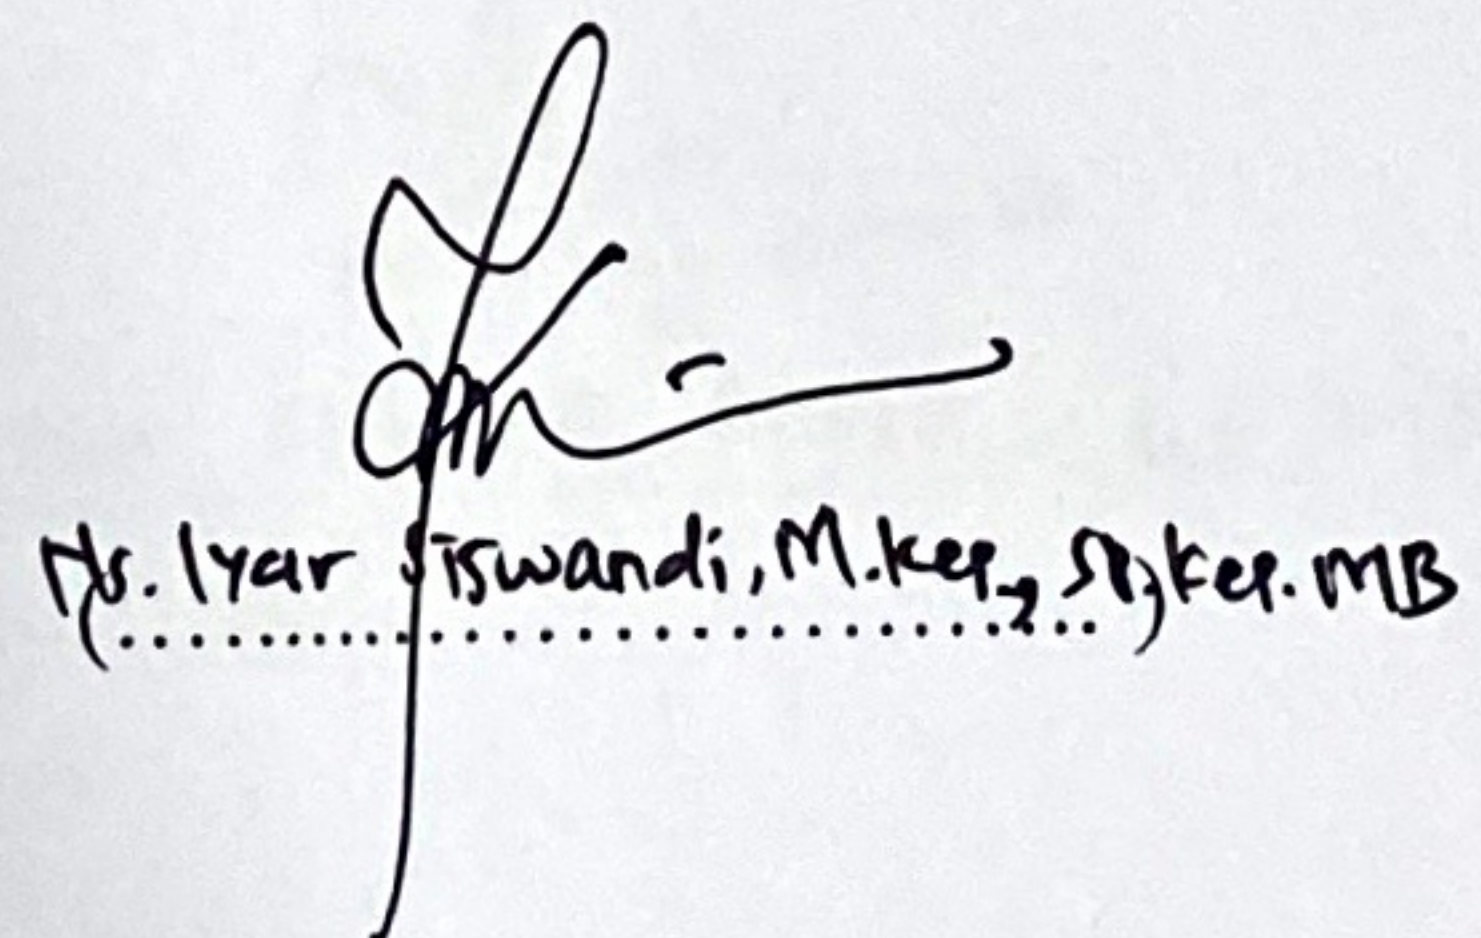 Ns. Iyar Siswandi, M.Kep., Sp.Kep.MB
(............................)